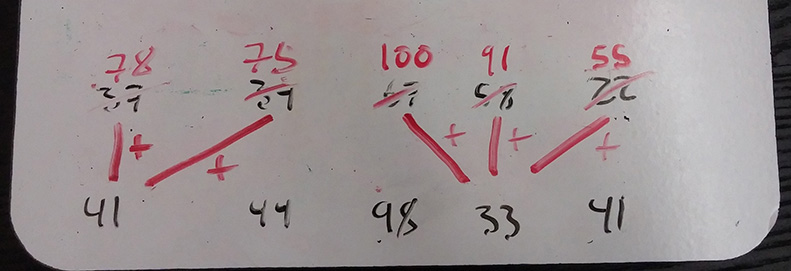 78 75 100 91 55
37 34 67 58 22
+ + + + +
41 44 98 33 41